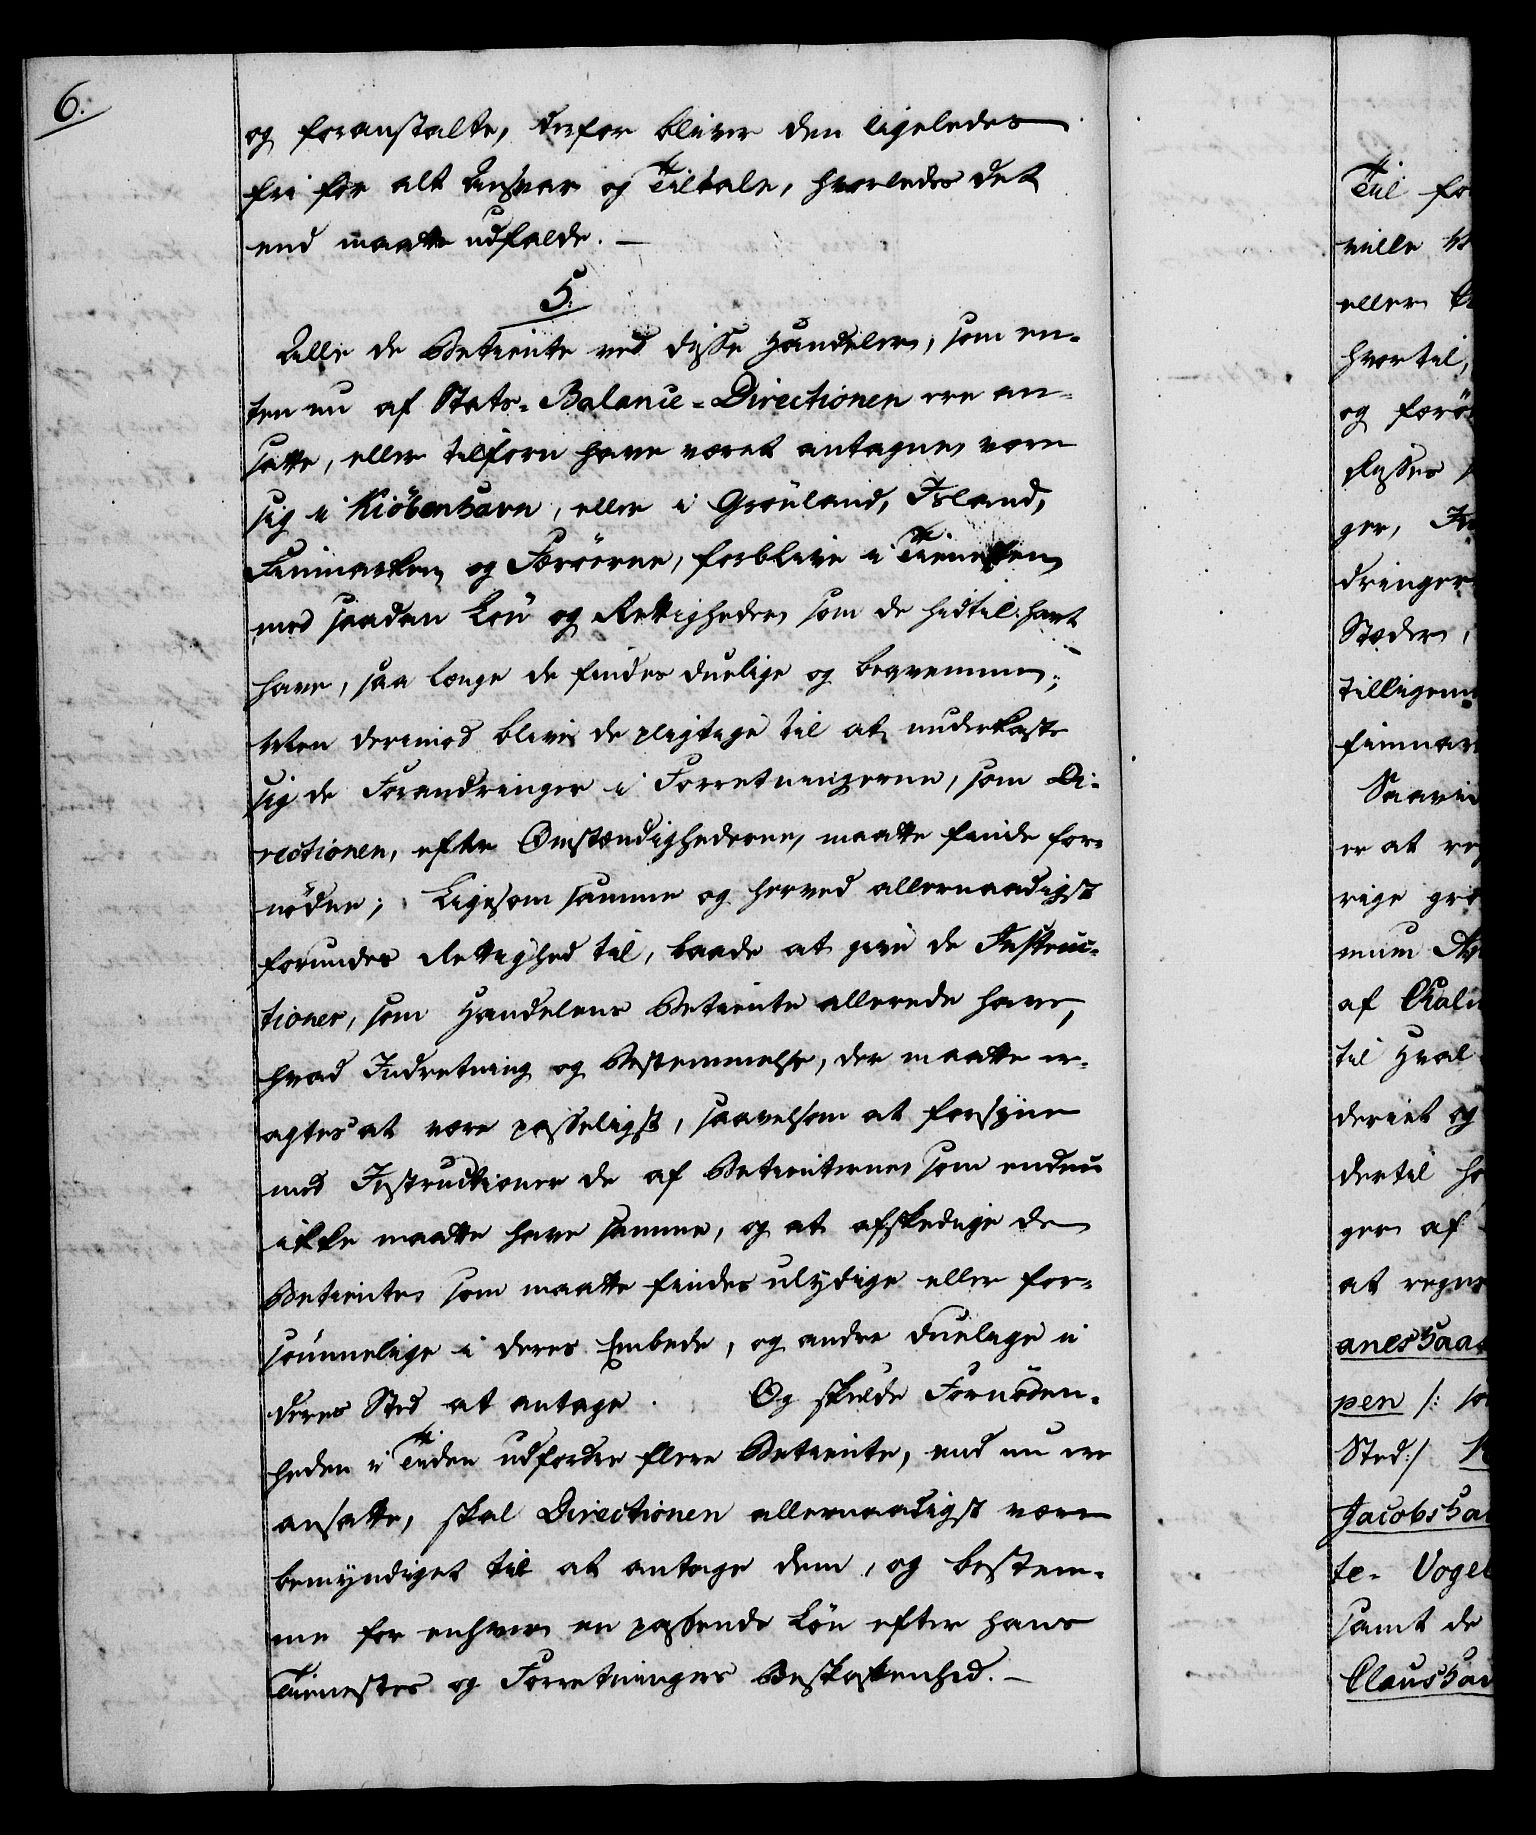 6.
og foranstalte, derfor bliver den ligeledes
fri for alt Ansvar og Tiltale, hvorledes det
end maatte udfalde. —
5.
Alle de Betiente ved disse Handeler, som en-
ten nu af Stats-Balance-Directionen ere an-
satte, eller tilforn have været antagne, være
sig i Kiöbenhavn, eller i Grönland, Island,
Finmarken og Færöerne, forblive i Tienesten
med saadan Lön og Rettigheder som de hidtil havt
have, saa længe de findes duelige og beqvemme;
Men derimod blive de pligtige til at underkaste
sig de Forandringer i Forretningerne, som Di-
rectionen, efter Omstændighederne, maatte finde for-
nödne; Ligesom samme og herved allernaadigst
forundes Rettighed til, baade at give de Instruc-
tioner, som Handelens Betiente allerede have,
hvad Indretning og Bestemmelse, der maatte er-
agtes at være passeligst, saavelsom at forsyne
med Instructioner de af Betienterne som endnu
ikke maatte have samme, og at afskedige de
Betiente som maatte findes ulydige eller for-
sömmelige i deres Embede, og andre duelige i
deres Sted at antage. Og skulde Fornöden-
heden i Tiden udfordre flere Betiente, end nu ere
ansatte, skal Directionen allernaadigst være
bemyndiget til at antage dem, og bestem-
me for enhver en passende Lön efter hans
Tienestes og Forretningers Beskaffenhed. —
Til fo
ville
eller
hvortil,
og forö
Passer
ger,
dringer
Stæder,
tilligem
finmar
Saavid
er at
rige grö
mum
af
til Hval
deriet og
dertil ha
ger af
at regn
anes Haab
pen /: so
Sted :/
Jacobs Ha
te- Vogel
samt de
Claus Hav